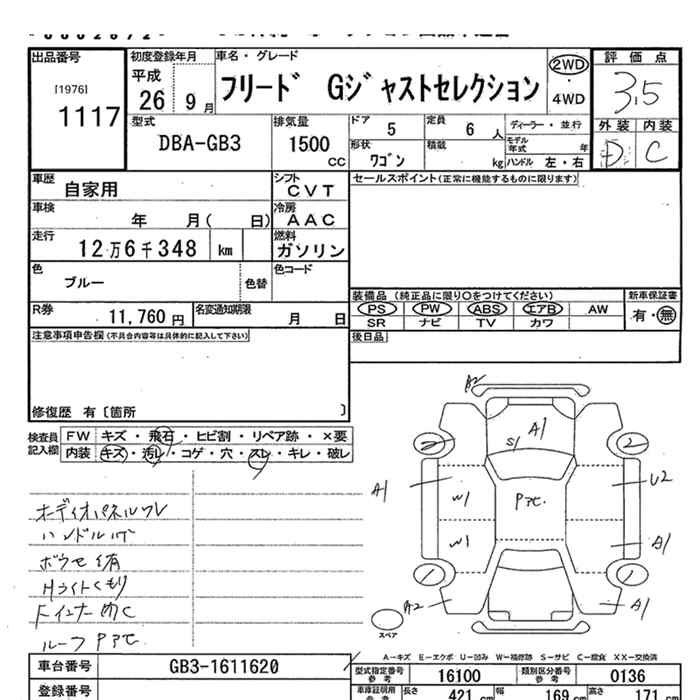 出品番号
[1976]
1117
初度登録年月
平成
26 9月
車名・グレード
フリード Gジャストセレクション
2WD
・
4WD
評価点
3.5
外装 内装
D C
型式
DBA-GB3
排気量
1500 cc
ドア 5
定員 6 人
ディーラー・並行
形状 ワゴン
積載 kg
モデル年式 年
ハンドル 左・右
車歴 自家用
シフト CVT
車検 年 月( 日)
冷房 AAC
走行 12万6千348 km
燃料 ガソリン
色 ブルー
色替
色コード
R券 11,760 円
名変通知期限 月 日
セールスポイント(正常に機能するものに限ります)
装備品 (純正品に限り○をつけてください)
新車保証書
PS PW ABS エアB AW
有・無
SR ナビ TV カワ
後日品
注意事項申告欄(不具合内容等は具体的に記入して下さい)
修復歴 有〔箇所 〕
検査員記入欄
FW キズ・飛石・ヒビ割・リペア跡・×要
内装 キズ・汚レ・コゲ・穴・スレ・キレ・破レ
オーディオパネルワレ
Hライトくもり
A2
A1
S1
2
2
A1
W1
Pアセ
U2
W1
A1
1
1
A2
A1
スペア
A-キズ E-エクボ U-凹み W-補修跡 S-サビ C-腐食 XX-交換済
車台番号 GB3-1611620
登録番号
型式指定番号参考 16100
類別区分番号参考 0136
車庫証明用参考
長さ 421 cm
幅 169 cm
高さ 171 cm